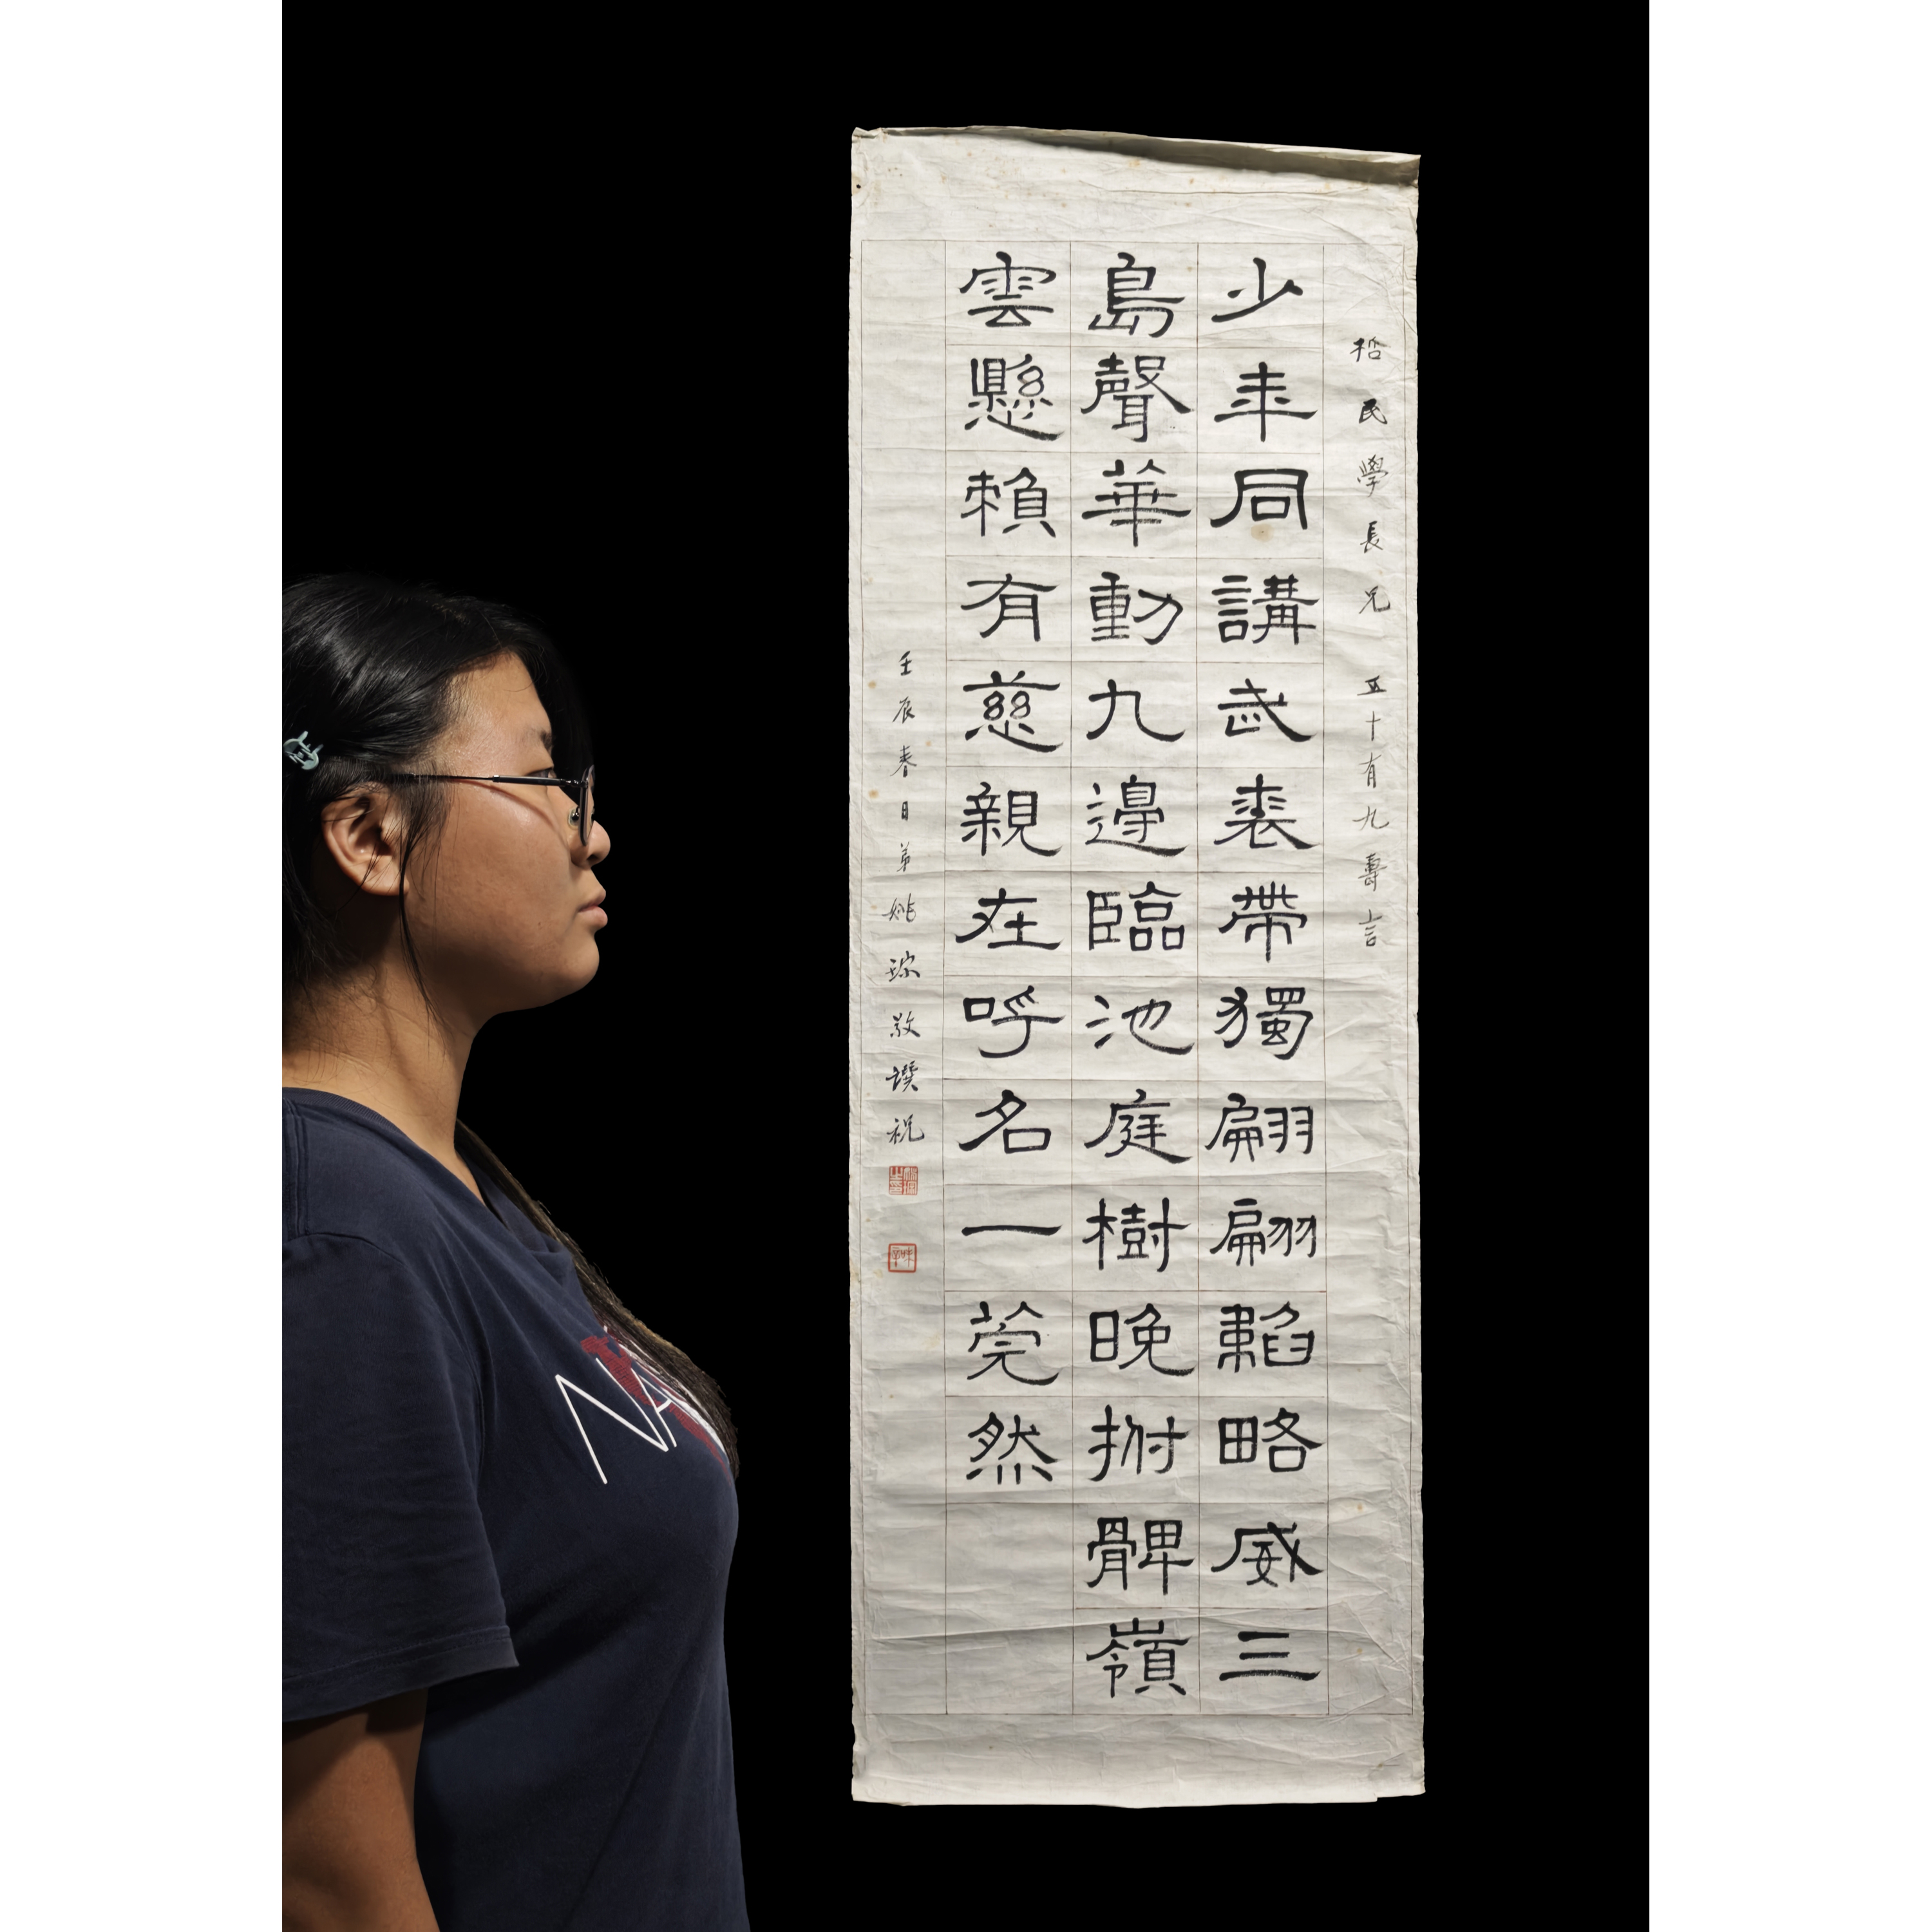 哲民學長兄 五十有九壽言
少年同講武裘帶獨翩翩韜略威三
島聲華動九邊臨池庭樹晚拊髀嶺
雲懸賴有慈親在呼名一莞然
壬辰春日弟姚琮敬譔祝
味辛
NA